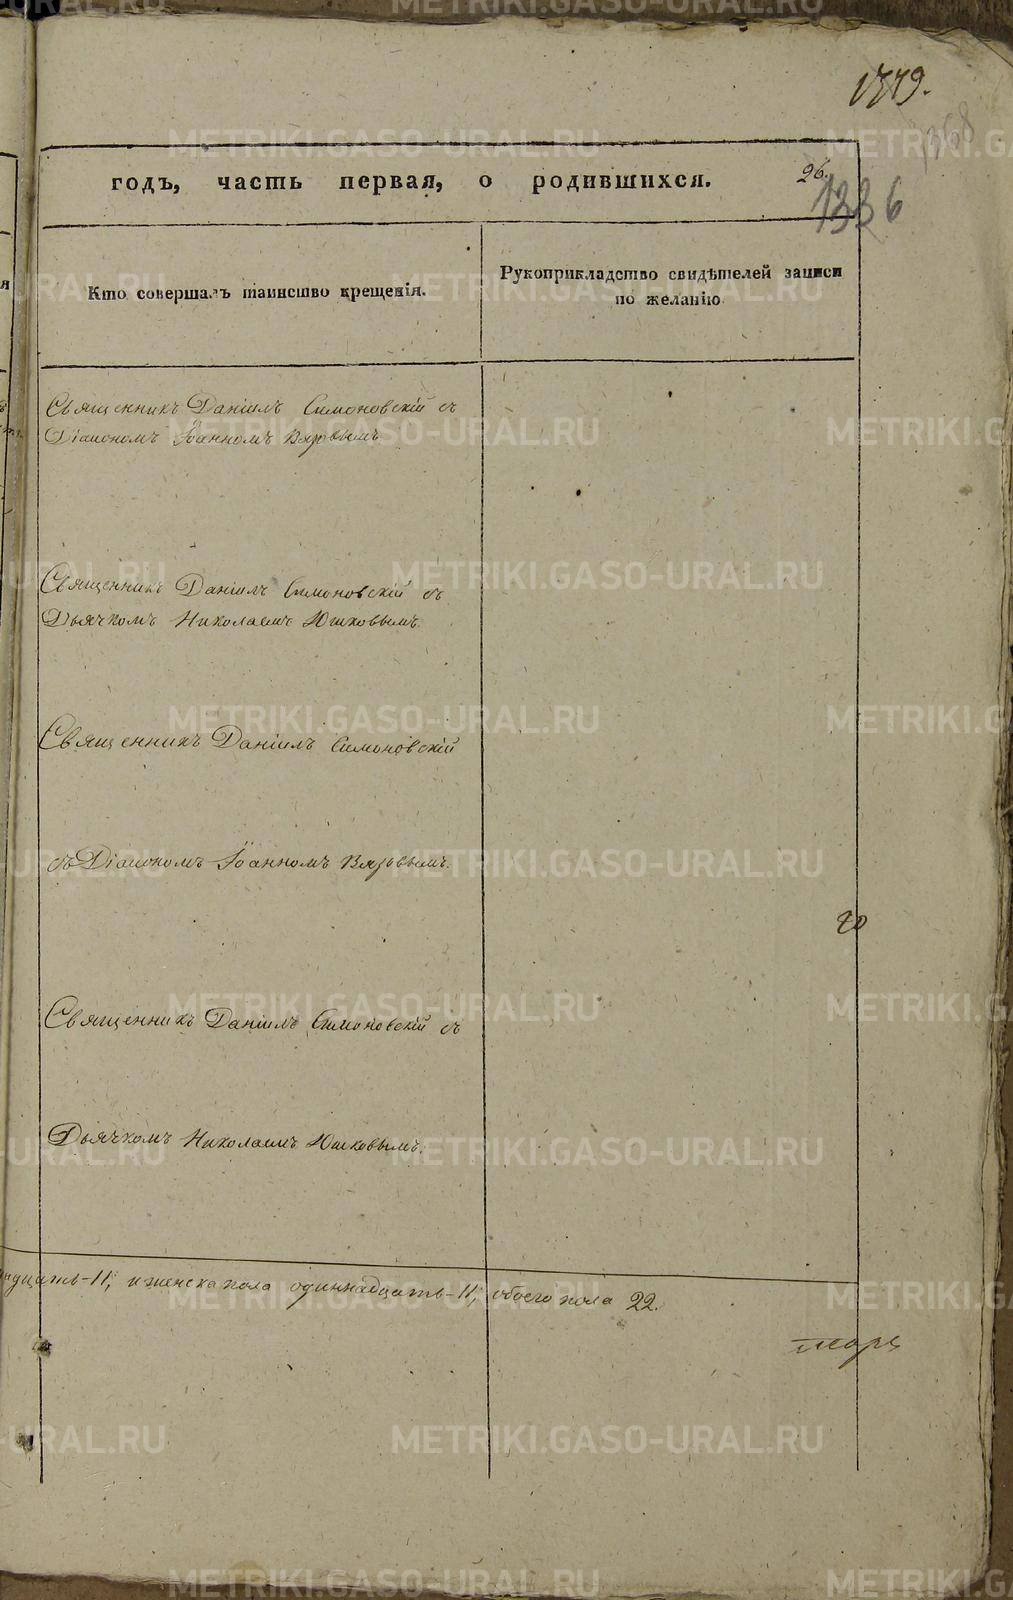 1779.
1368
годъ, часть первая, о родившихся.
26.
1336
Кто совершалъ таинство крещенія.
Рукоприкладство свидѣтелей записи
по желанію
Священникъ Даніилъ Симоновскій съ
Діакономъ Іоанномъ
Священникъ Даніилъ Симоновскій съ
Дьячкомъ Николаемъ Юшковымъ.
Священникъ Даніилъ Симоновскій
съ Діакономъ Іоанномъ
20
Священникъ Даніилъ Симоновскій съ
Дьячкомъ Николаемъ Юшковымъ.
надцать-11, и женска пола одиннадцать-11, обоего пола 22.
METRIKI.GASO-URAL.RU